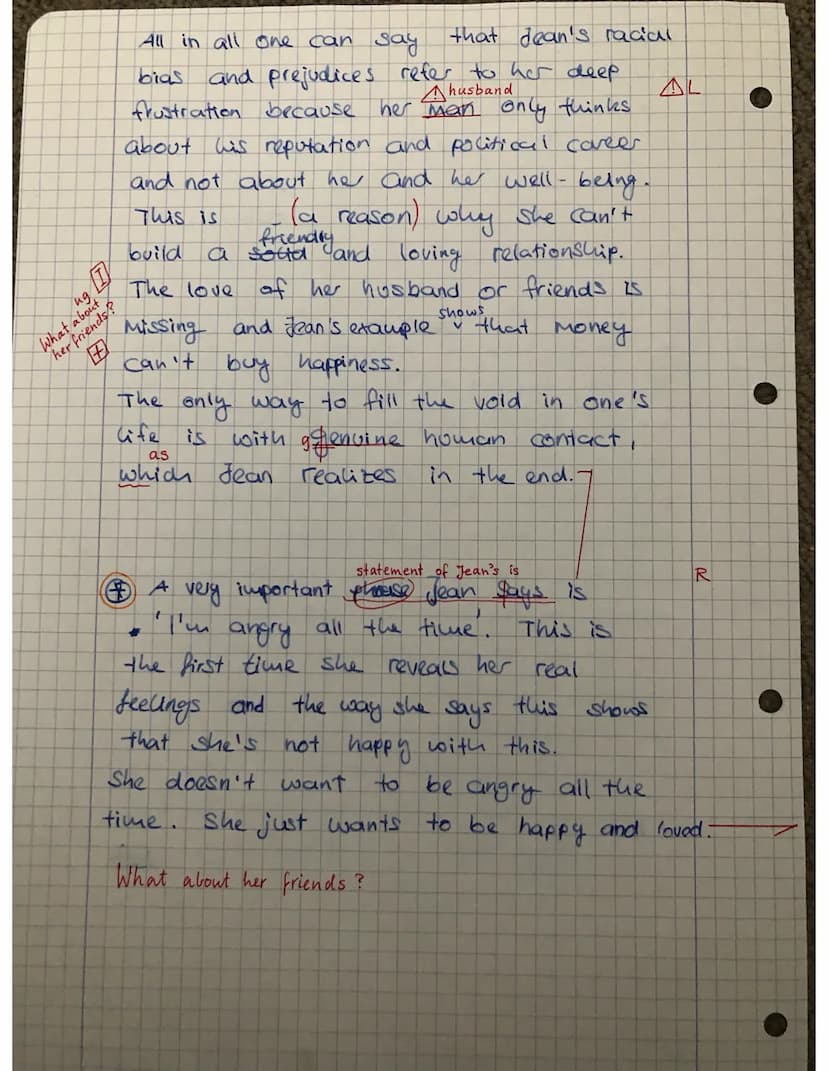 All in all one can say that Jean's racial
bias and prejudices refer to her deep
husband
L
frustration because her man only thinks
about his reputation and political career
and not about her and her well-being.
This is (a reason) why she can't
friendly
build a solid and loving relationship.
I
ug
What about
her friends?
The love of her husband or friends is
shows
missing and Jean's example that money
can't buy happiness.
The only way to fill the void in one's
life is with genuine human contact,
as
which Jean realizes in the end.
statement of Jean's is
R
A very important phrase Jean says is
'I'm angry all the time'. This is
the first time she reveals her real
feelings and the way she says this shows
that she's not happy with this.
She doesn't want to be angry all the
time. She just wants to be happy and loved.
What about her friends?